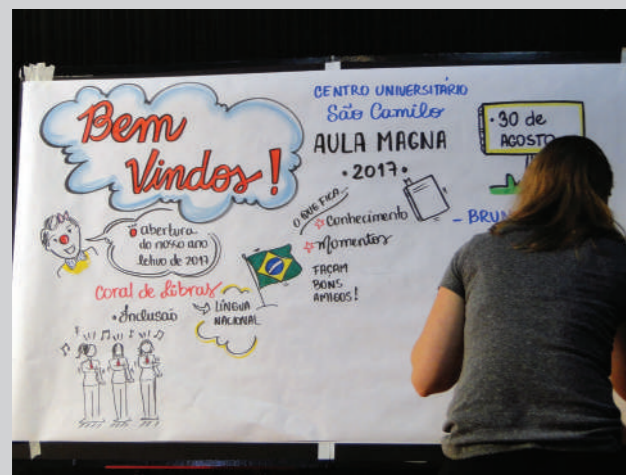 Bem
Vindos!
CENTRO UNIVERSITÁRIO
São Camilo
AULA MAGNA
• 2017 •
• 30 de
AGOSTO
abertura
do nosso ano
letivo de 2017
O QUE FICA
Conhecimento
Momentos
FAÇAM
BONS
AMIGOS!
Coral de Libras
• Inclusão
LÍNGUA
NACIONAL